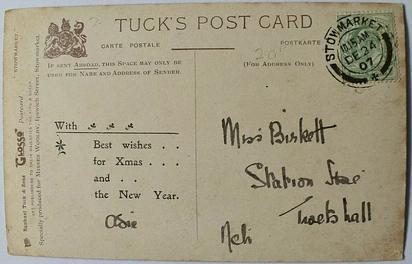 TUCK'S POST CARD
CARTE POSTALE
POSTKARTE
IF SENT ABROAD, THIS SPACE MAY ONLY BE
USED FOR NAME AND ADDRESS OF SENDER.
(FOR ADDRESS ONLY)
STOWMARKET
10.15 AM
DE 24
07
With
Best wishes . .
for Xmas . . .
and . .
the New Year.
Miss Birkett
Station
STOWMARKET.
"Glosso" Postcard
Raphael Tuck & Sons
ART PUBLISHERS TO THEIR MAJESTIES THE KING & QUEEN
Specially produced for Misses Woolby, Ipswich Street, Stowmarket.